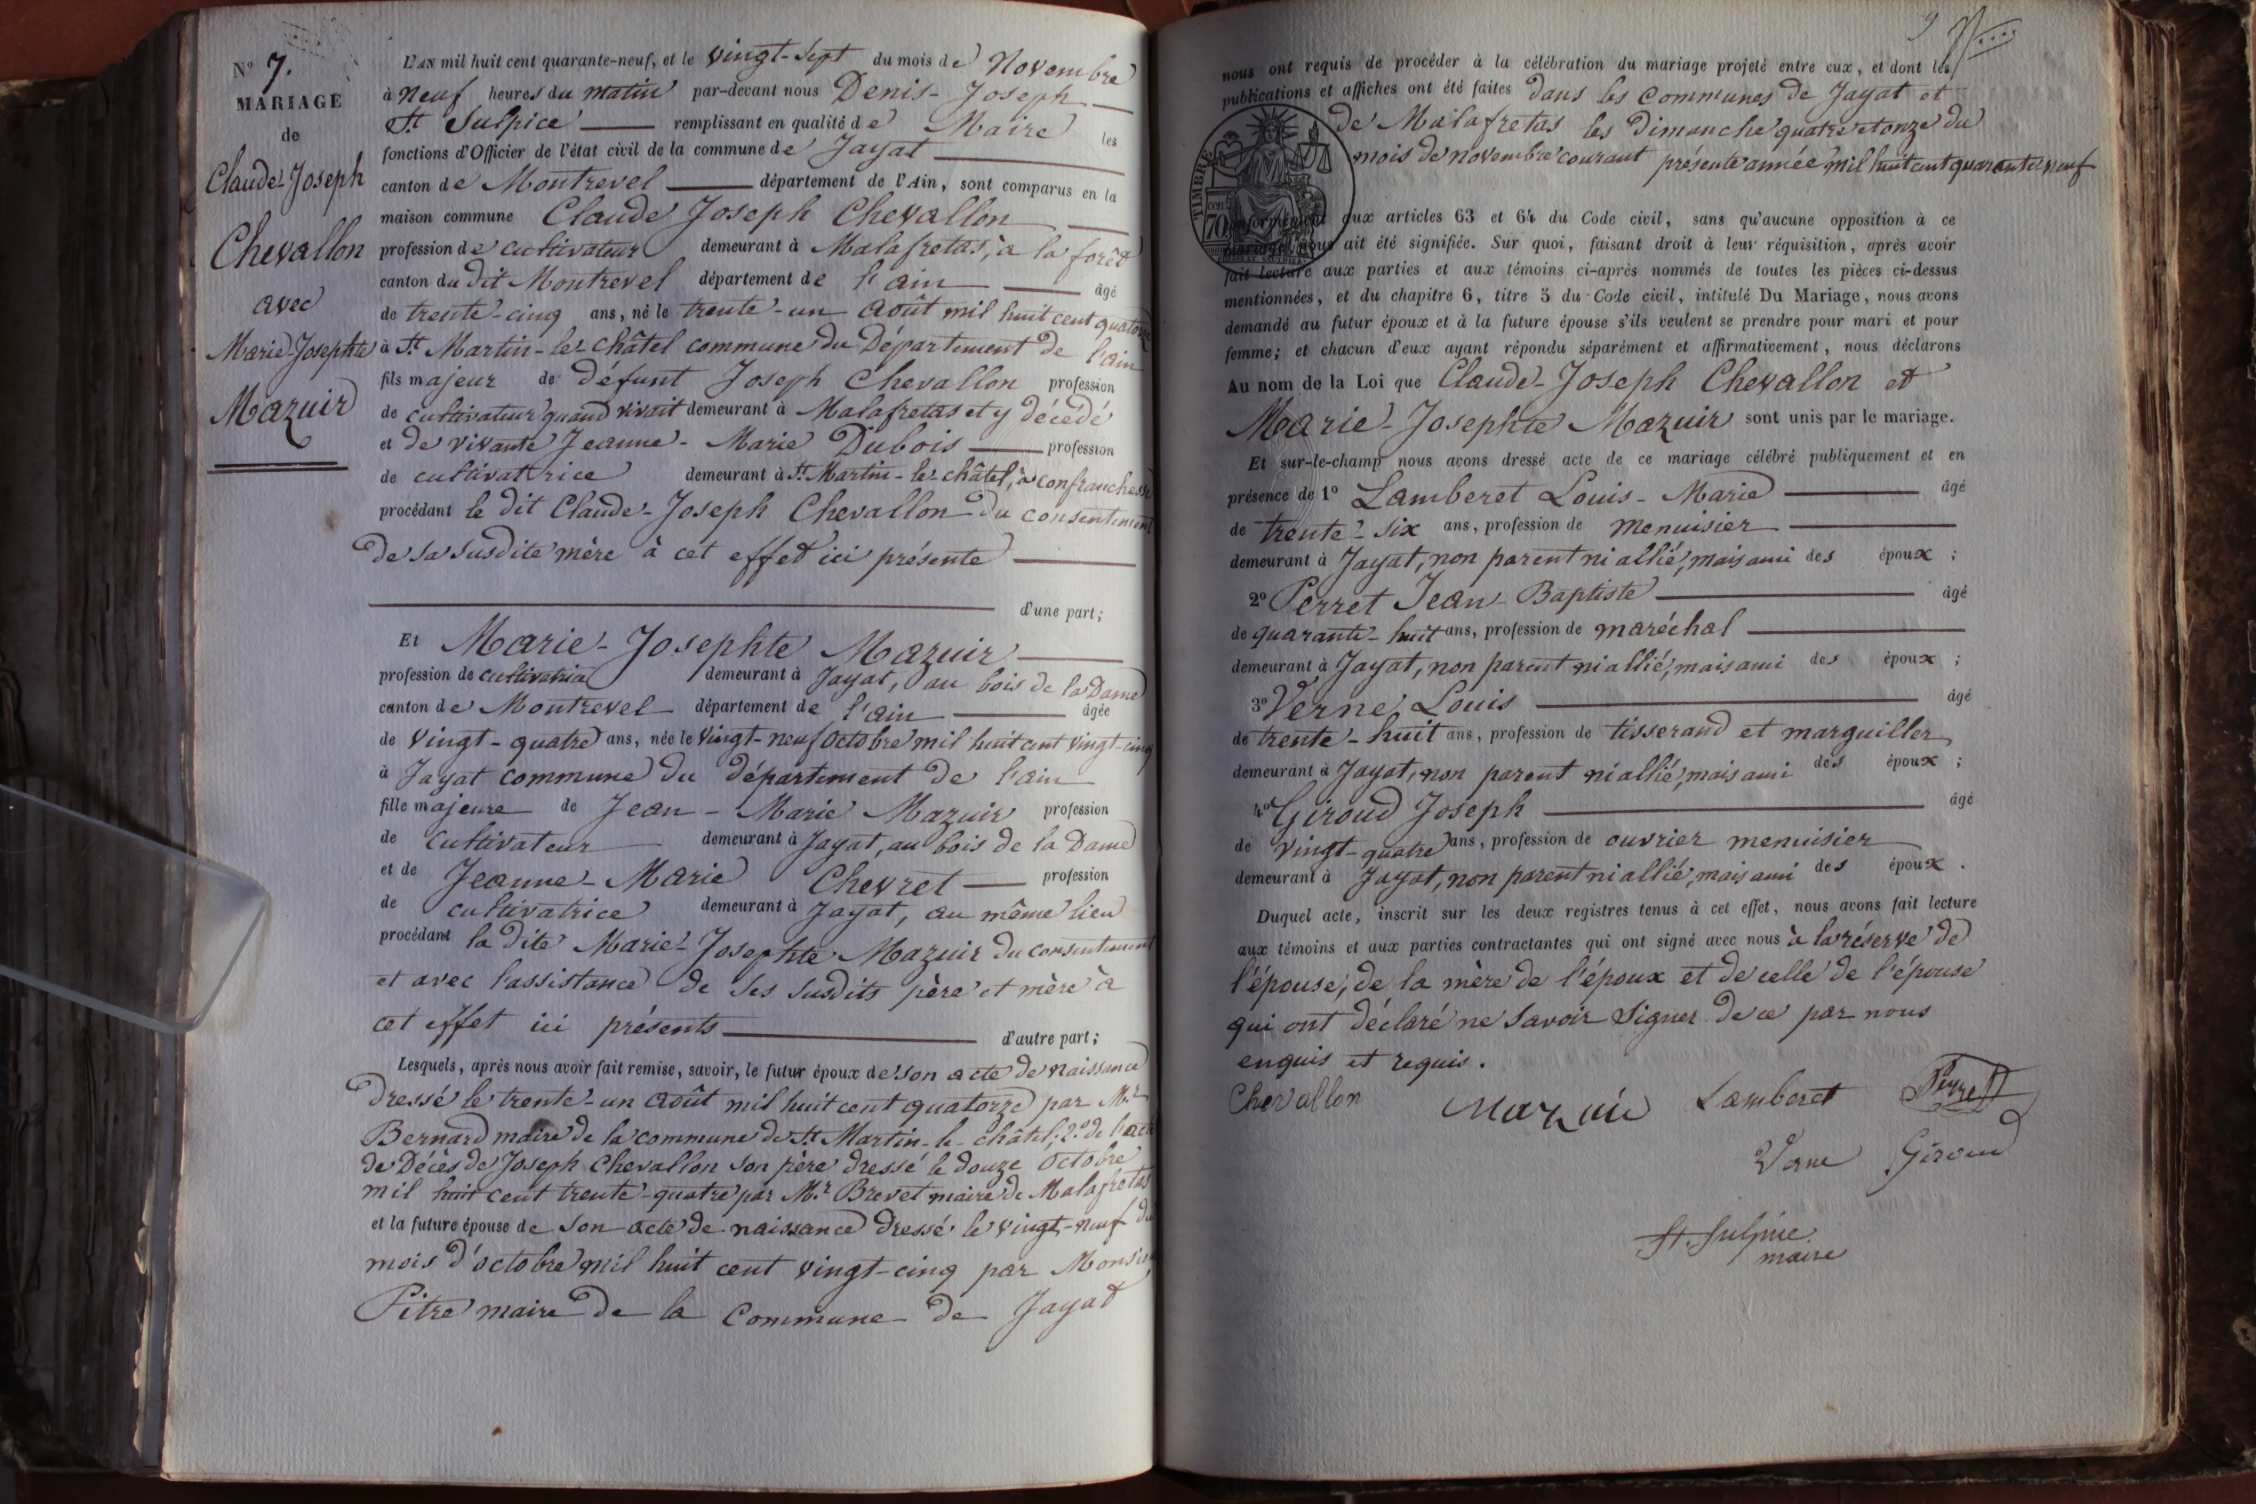 N° 7.
MARIAGE
de
Claude-Joseph
Chevallon
avec
Marie-Josephte
Mazuir
L'AN mil huit cent quarante-neuf, et le vingt-sept du mois de Novembre
à neuf heures du matin par-devant nous Denis-Joseph
St Sulpice remplissant en qualité de Maire les
fonctions d'Officier de l'état civil de la commune de Jayat
canton de Montrevel département de l'Ain, sont comparus en la
maison commune Claude Joseph Chevallon
profession de cultivateur demeurant à Malafretas, à la forêt
canton du dit Montrevel département de l'ain âgé
de trente-cinq ans, né le trente-un août mil huit cent quatorze
à St Martin-le-châtel commune du Département de l'ain
fils majeur de défunt Joseph Chevallon profession
de cultivateur quand vivait demeurant à Malafretas et y décédé
et de vivante Jeanne-Marie Dubois profession
de cultivatrice demeurant à St Martin-le-châtel, à Confranchesse
procédant le dit Claude-Joseph Chevallon du consentement
de sa susdite mère à cet effet ici présente
d'une part;
Et Marie-Josephte Mazuir
profession de cultivatrice demeurant à Jayat, au bois de la Dame
canton de Montrevel département de l'ain âgée
de vingt-quatre ans, née le vingt-neuf octobre mil huit cent vingt-cinq
à Jayat commune du département de l'ain
fille majeure de Jean-Marie Mazuir profession
de cultivateur demeurant à Jayat, au bois de la Dame
et de Jeanne-Marie Chevret profession
de cultivatrice demeurant à Jayat, au même lieu
procédant la dite Marie-Josephte Mazuir du consentement
et avec l'assistance de ses susdits père et mère à
cet effet ici présents d'autre part;
Lesquels, après nous avoir fait remise, savoir, le futur époux de son acte de naissance
dressé le trente-un août mil huit cent quatorze par Mr
Bernard maire de la commune de St Martin-le-châtel; 2° de l'acte
de Décès de Joseph Chevallon son père dressé le douze octobre
mil huit cent trente-quatre par Mr Brevet maire de Malafretas
et la future épouse de son acte de naissance dressé le vingt-neuf du
mois d'octobre mil huit cent vingt-cinq par Monsieur
Pitre maire de la commune de Jayat
9
nous ont requis de procéder à la célébration du mariage projeté entre eux, et dont les
publications et affiches ont été faites dans les communes de Jayat et
de Malafretas les dimanche quatre et onze du
mois de novembre courant présente année mil huit cent quarante-neuf
TIMBRE
70 cen
conformément aux articles 63 et 64 du Code civil, sans qu'aucune opposition à ce
mariage nous ait été signifiée. Sur quoi, faisant droit à leur réquisition, après avoir
fait lecture aux parties et aux témoins ci-après nommés de toutes les pièces ci-dessus
mentionnées, et du chapitre 6, titre 5 du Code civil, intitulé Du Mariage, nous avons
demandé au futur époux et à la future épouse s'ils veulent se prendre pour mari et pour
femme; et chacun d'eux ayant répondu séparément et affirmativement, nous déclarons
Au nom de la Loi que Claude-Joseph Chevallon et
Marie-Josephte Mazuir sont unis par le mariage.
Et sur-le-champ nous avons dressé acte de ce mariage célébré publiquement et en
présence de 1° Lamberet Louis-Marie âgé
de trente-six ans, profession de menuisier
demeurant à Jayat, non parent ni allié, mais ami des époux ;
2° Perret Jean-Baptiste âgé
de quarante-huit ans, profession de maréchal
demeurant à Jayat, non parent ni allié, mais ami des époux ;
3° Verne Louis âgé
de trente-huit ans, profession de tisserand et marguiller
demeurant à Jayat, non parent ni allié, mais ami des époux ;
4° Giroud Joseph âgé
de vingt-quatre ans, profession de ouvrier menuisier
demeurant à Jayat, non parent ni allié, mais ami des époux.
Duquel acte, inscrit sur les deux registres tenus à cet effet, nous avons fait lecture
aux témoins et aux parties contractantes qui ont signé avec nous à la réserve de
l'épouse, de la mère de l'époux et de celle de l'épouse
qui ont déclaré ne savoir signer de ce par nous
enquis et requis.
Chevallon Mazuir Lamberet Perret
Verne Giroud
St Sulpice
maire